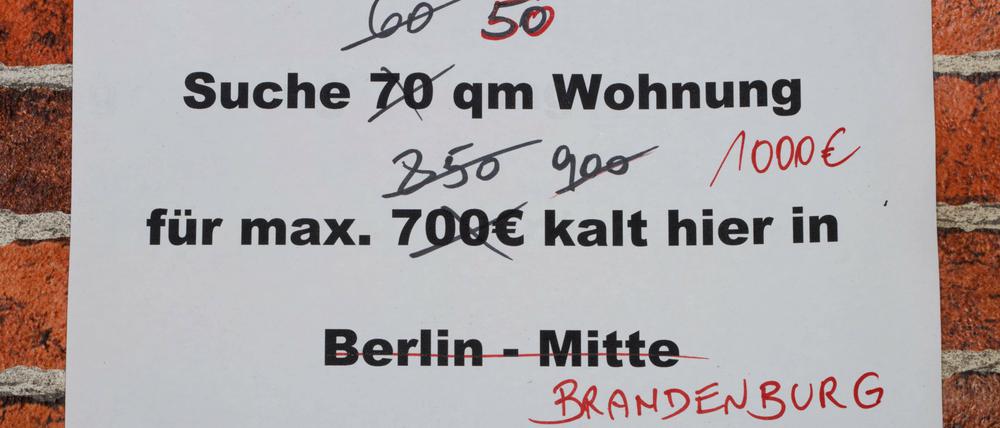 60 50
Suche 70 qm Wohnung
850 900 1000€
für max. 700€ kalt hier in
Berlin - Mitte
BRANDENBURG